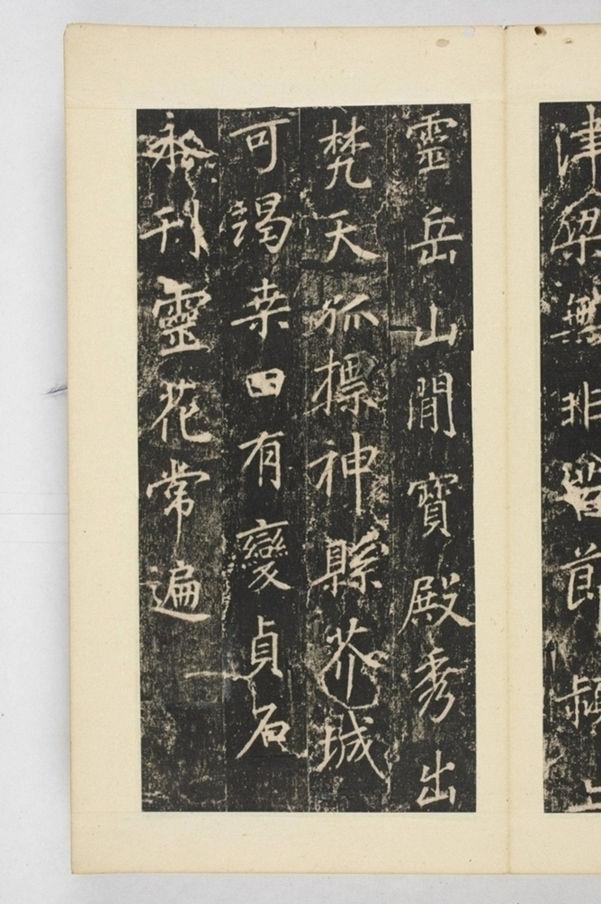 津梁無非皆節
靈岳山閒寶殿秀出
梵天孤摽神縣芥城
可竭桒田有變貞石
永刊靈花常遍